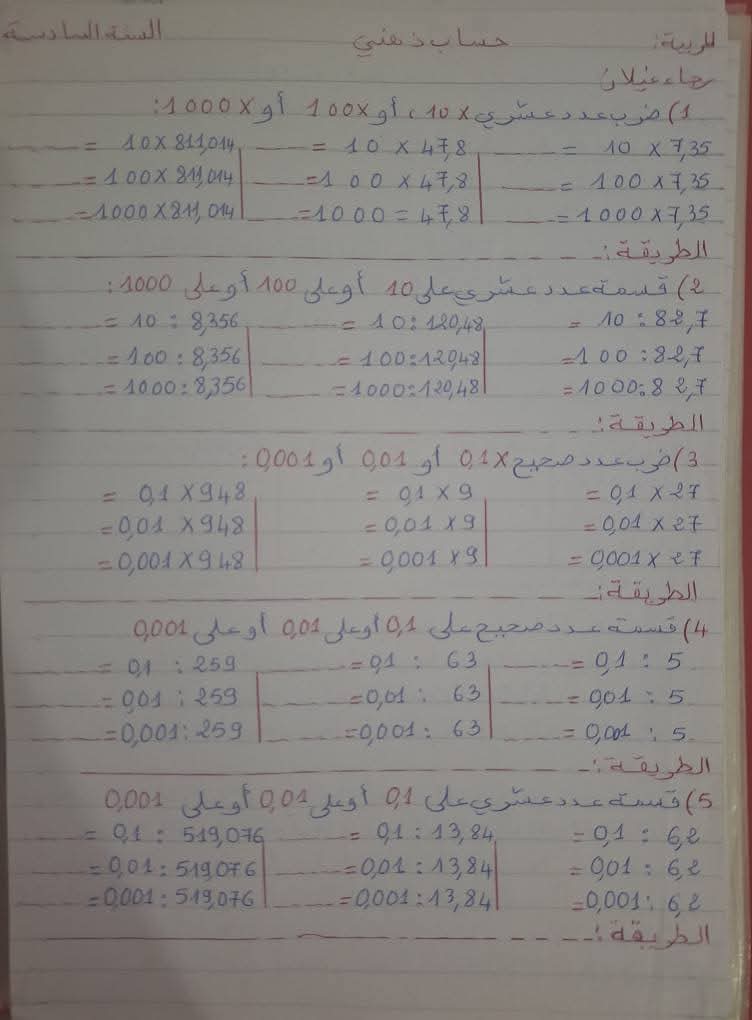 المربية: حساب ذهني السنة السادسة
رجاء غيلان
1) ضرب عدد عشري x 10، أو 100x أو 1000x:
7,35 x 10 = ...... 47,8 x 10 = ...... 811,014 x 10 = ......
7,35 x 100 = ...... 47,8 x 100 = ...... 811,014 x 100 = ......
7,35 x 1000 = ...... 47,8 = 1000 = ...... 811,014 x 1000 = ......
الطريقة: ......
2) قسمة عدد عشري على 10 أو على 100 أو على 1000:
82,7 : 10 = 120,48 : 10 = ...... 8,356 : 10 = ......
82,7 : 100 = 120,48 : 100 = ...... 8,356 : 100 = ......
82,7 : 1000 = 120,48 : 1000 = ...... 8,356 : 1000 = ......
الطريقة: ......
3) ضرب عدد صحيح x 0,1 أو 0,01 أو 0,001:
27 x 0,1 = 9 x 0,1 = 948 x 0,1 =
27 x 0,01 = 9 x 0,01 = 948 x 0,01 =
27 x 0,001 = 9 x 0,001 = 948 x 0,001 =
الطريقة: ......
4) قسمة عدد صحيح على 0,1 أو على 0,01 أو على 0,001
5 : 0,1 = ...... 63 : 0,1 = ...... 259 : 0,1 = ......
5 : 0,01 = ...... 63 : 0,01 = ...... 259 : 0,01 = ......
5 : 0,001 = ...... 63 : 0,001 = ...... 259 : 0,001 = ......
الطريقة: ......
5) قسمة عدد عشري على 0,1 أو على 0,01 أو على 0,001
6,2 : 0,1 = 13,84 : 0,1 = ...... 519,076 : 0,1 = ......
6,2 : 0,01 = 13,84 : 0,01 = ...... 519,076 : 0,01 = ......
6,2 : 0,001 = 13,84 : 0,001 = ...... 519,076 : 0,001 = ......
الطريقة: ......